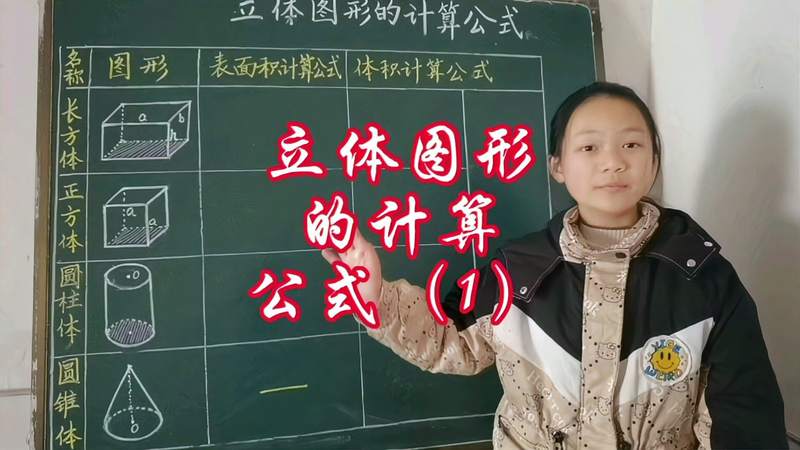 立体图形的计算公式
名称 图形 表面积计算公式 体积计算公式
长方体 a h
正方体 a a
圆柱体 O
圆锥体 —
立体图形
的计算
公式（1）